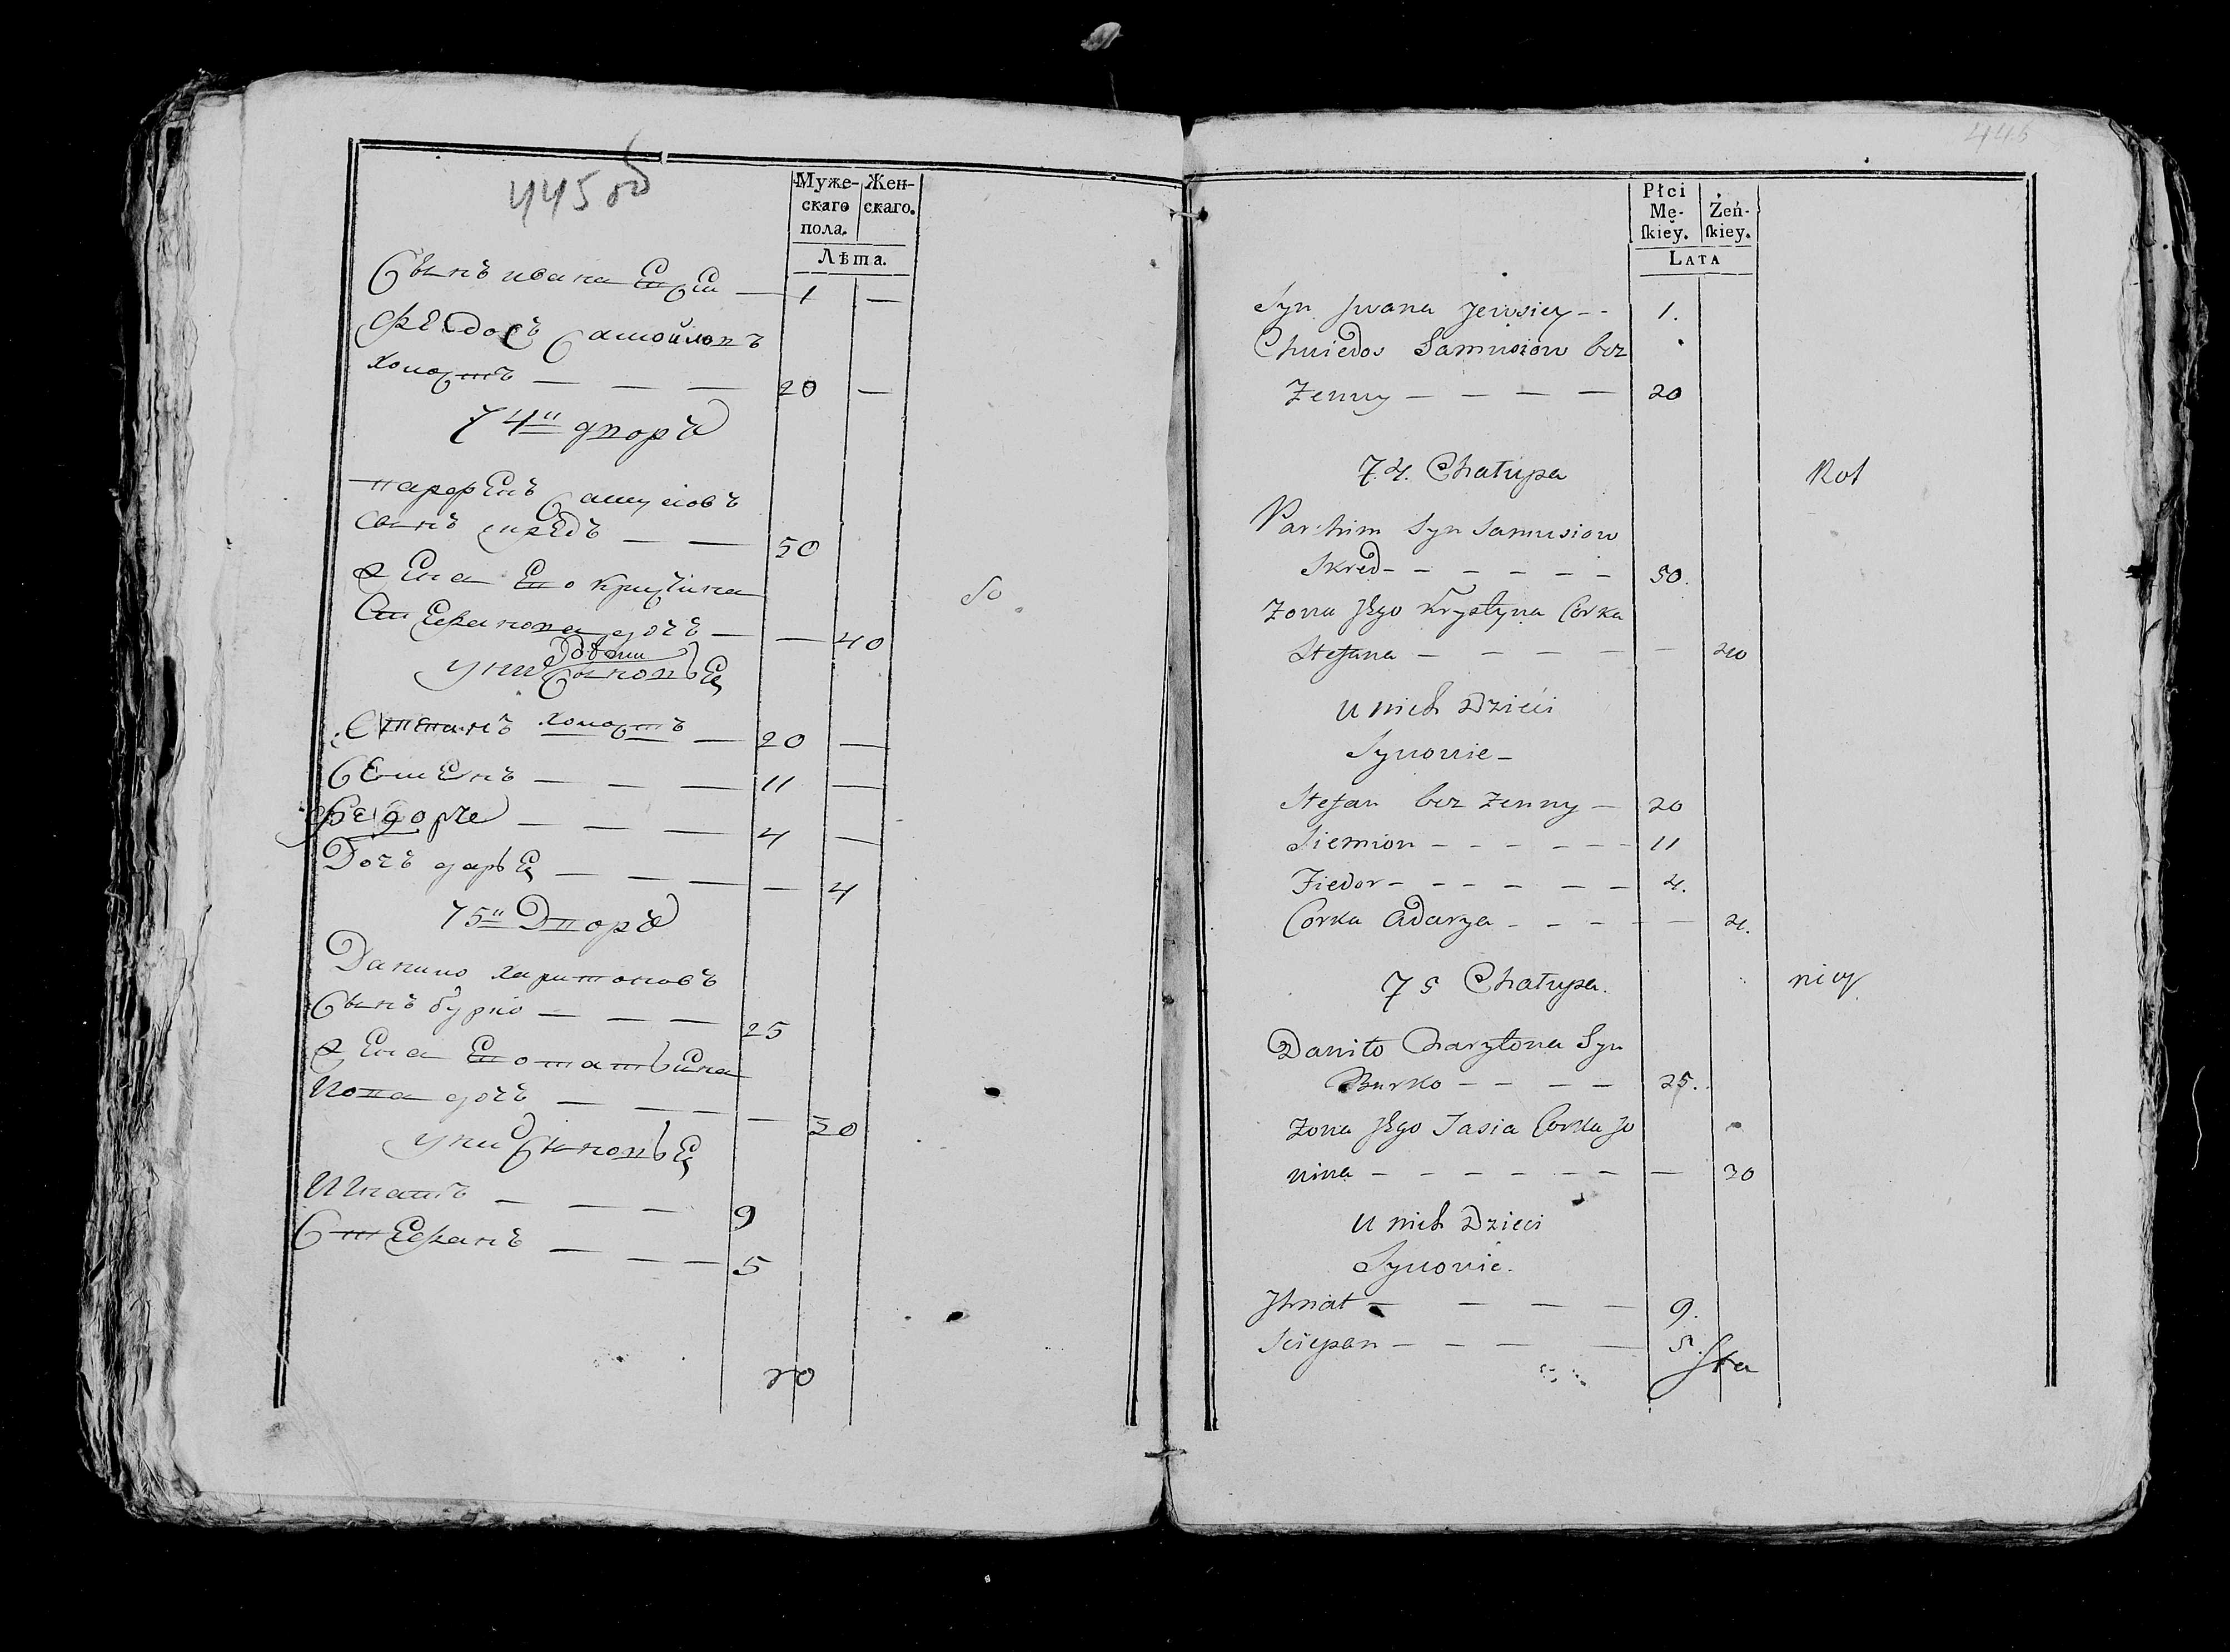 445 об
Муже- Жен-
скаго скаго.
пола.
Лѣта.
Сынъ ивана — 1 —
Феѡдосъ Самойловъ
холостъ — — — 20 —
74й дворъ
парфенъ Самусовъ
сынъ скредъ — — 50
жена Его кристина
Стефанова дочъ — — 40
у них дѣти
Сыновьѧ
Степанъ холостъ — 20 —
Семенъ — — — 11 —
Федоръ — — — 4 —
Дочъ дарьѧ — — — — 4
75й Дворъ
Данило харитоновъ
Сынъ бурко — — — 25
жена Его
дочъ — — — — 30
у них Сыновьѧ
Игнатъ — — — 9
Стефанъ — — — 5
446
Płci
Mę- Żeń-
ſkiey. ſkiey.
LATA
Syn Jwana Jewsiey - - 1.
Chwiedos Samusiow bez
Zenny — — — — 20
74. Chałupa
Parchim Syn Samusiow
Skred - - - - - - 50.
Zona Jego Krystyna Corka
Stefana — — — — — — 40
u nich Dzieci
Synowie -
Stefan bez Zenny — 20
Siemion - - - - - - 11
Fiedor - - - - - - 4.
Corka Adarya - - - - — 4.
75 Chałupa.
Daniło Charytona Syn
Burko - - - - 25.
Zona Jego Corka Jo
nina - - - - - - - — 30
u nich Dzieci
Synowie.
Jhnat — — — — 9.
Sciepan — — — — 5.